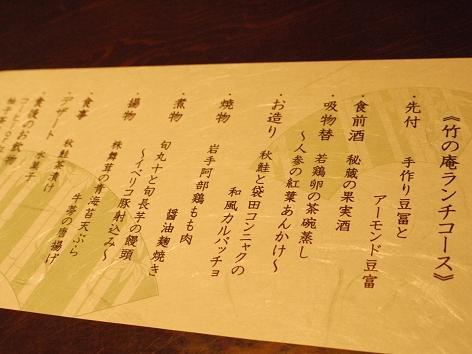 《竹の庵ランチコース》
・先付　手作り豆冨と
アーモンド豆富
・食前酒　秘蔵の果実酒
・吸物替　若鶏卵の茶碗蒸し
～人参の紅葉あんかけ～
・お造り　秋鮭と袋田コンニャクの
和風カルパッチョ
・焼物　岩手阿部鶏もも肉
醤油麹焼き
・煮物　旬丸十と旬長芋の饅頭
～イベリコ豚射込み～
・揚物　株舞茸の青海苔天ぷら
牛蒡の唐揚げ
・食事　秋鮭茶漬け
・デザート　水菓子
・食後のお飲物